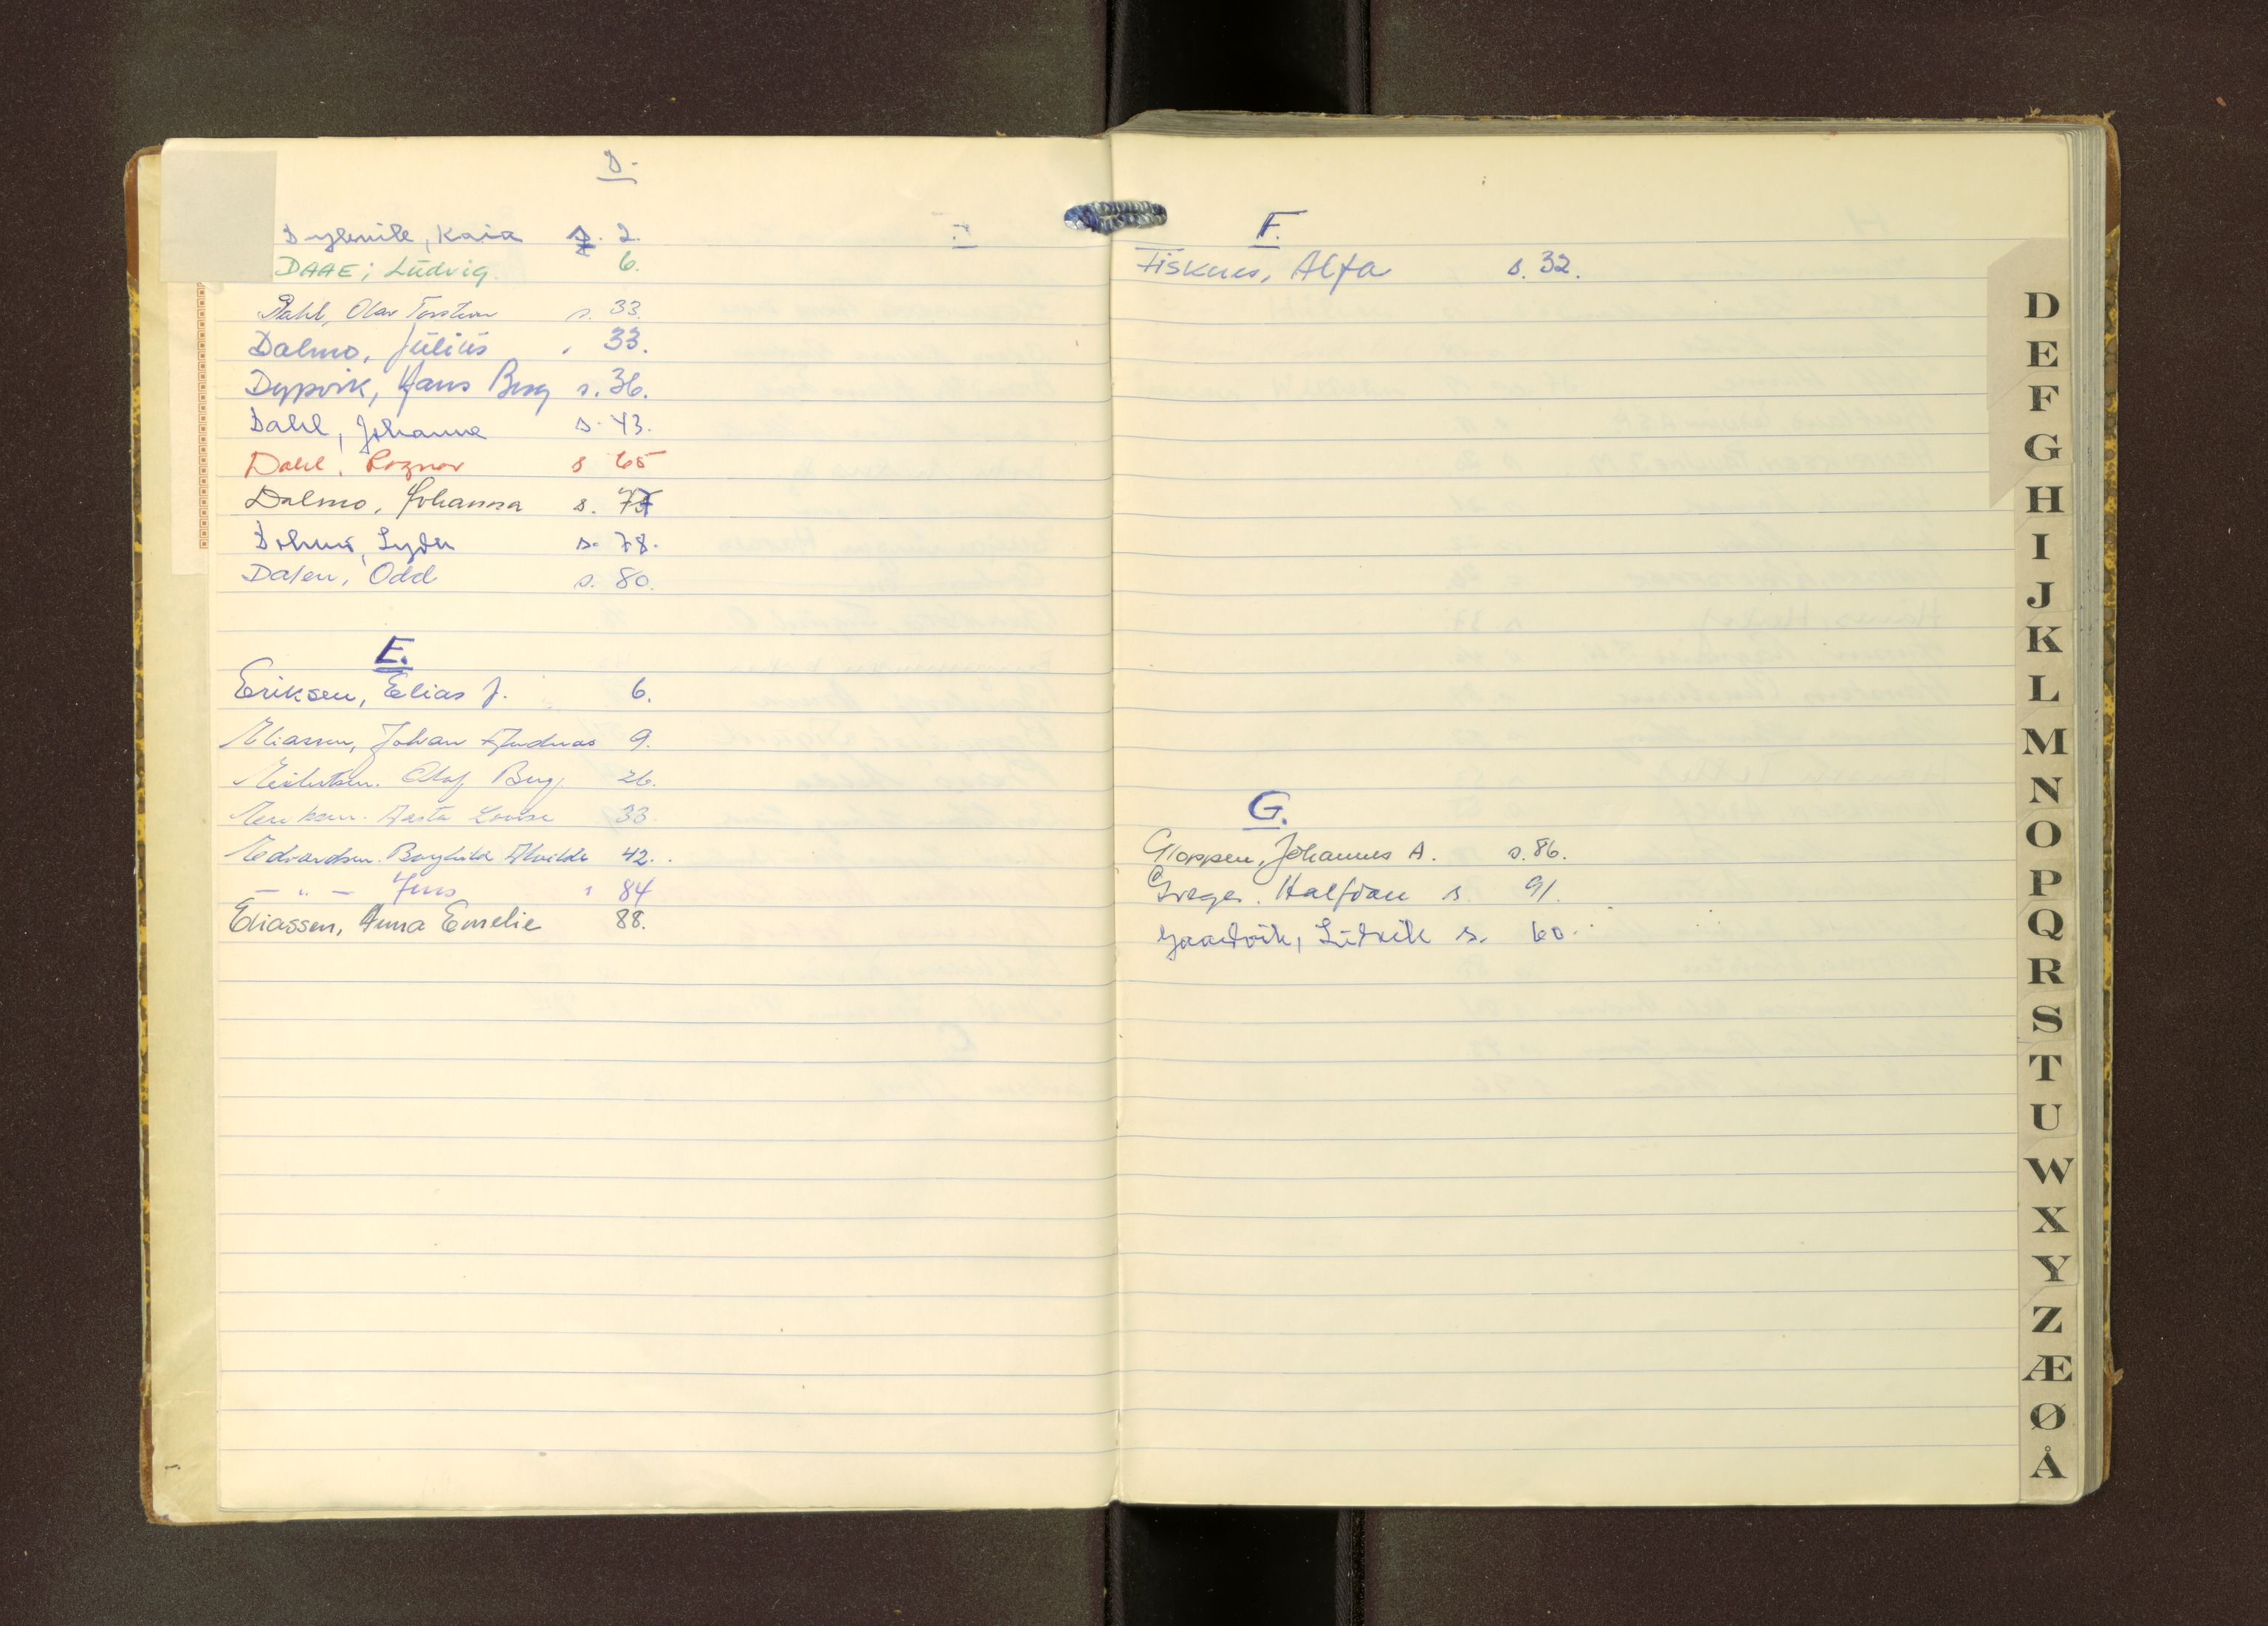 D.
Kaia s. 2.
DAAE; Lüdvig. 6.
Dahl, Olav Torstein s. 33.
Dalmo, Jülius , 33.
Dypvik, Hans Berg s. 36.
Dahl, Johanna s. 43.
Dahl, Ragnar s 65
Dalmo, Johanna s. 77
Lyder s. 78.
Dalen, Odd s. 80.
E.
Eriksen, Elias J. 6.
Eliassen, Johan Andreas 9.
Olaf Berg. 26.
Eriksen. Aasta Lovise 33
Edvardsen. Borghild Alvilde 42.
— " — Jens s 84
Eliassen, Anna Emelie 88.
F.
Fisknes, Alfa s. 32.
G.
Gloppen, Johannes A. s. 86.
Halfdan s. 91.
Lüdvik s. 60.
D
E
F
G
H
I
J
K
L
M
N
O
P
Q
R
S
T
U
W
X
Y
Z
Æ
Ø
Å